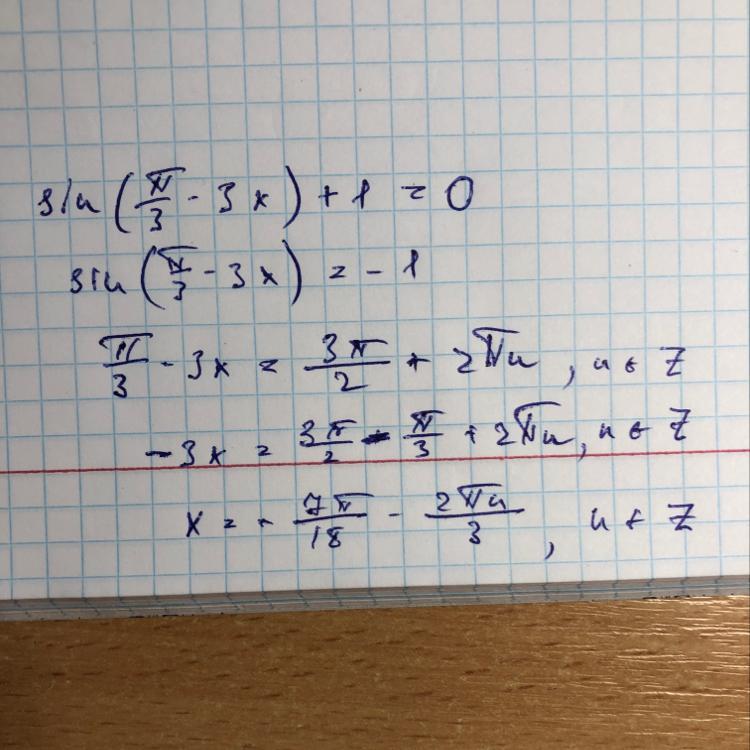 sin(π/3 - 3x) + 1 = 0
sin(π/3 - 3x) = -1
π/3 - 3x = 3π/2 + 2πn, n ∈ Z
-3x = 3π/2 - π/3 + 2πn, n ∈ Z
x = - 7π/18 - 2πn/3, n ∈ Z